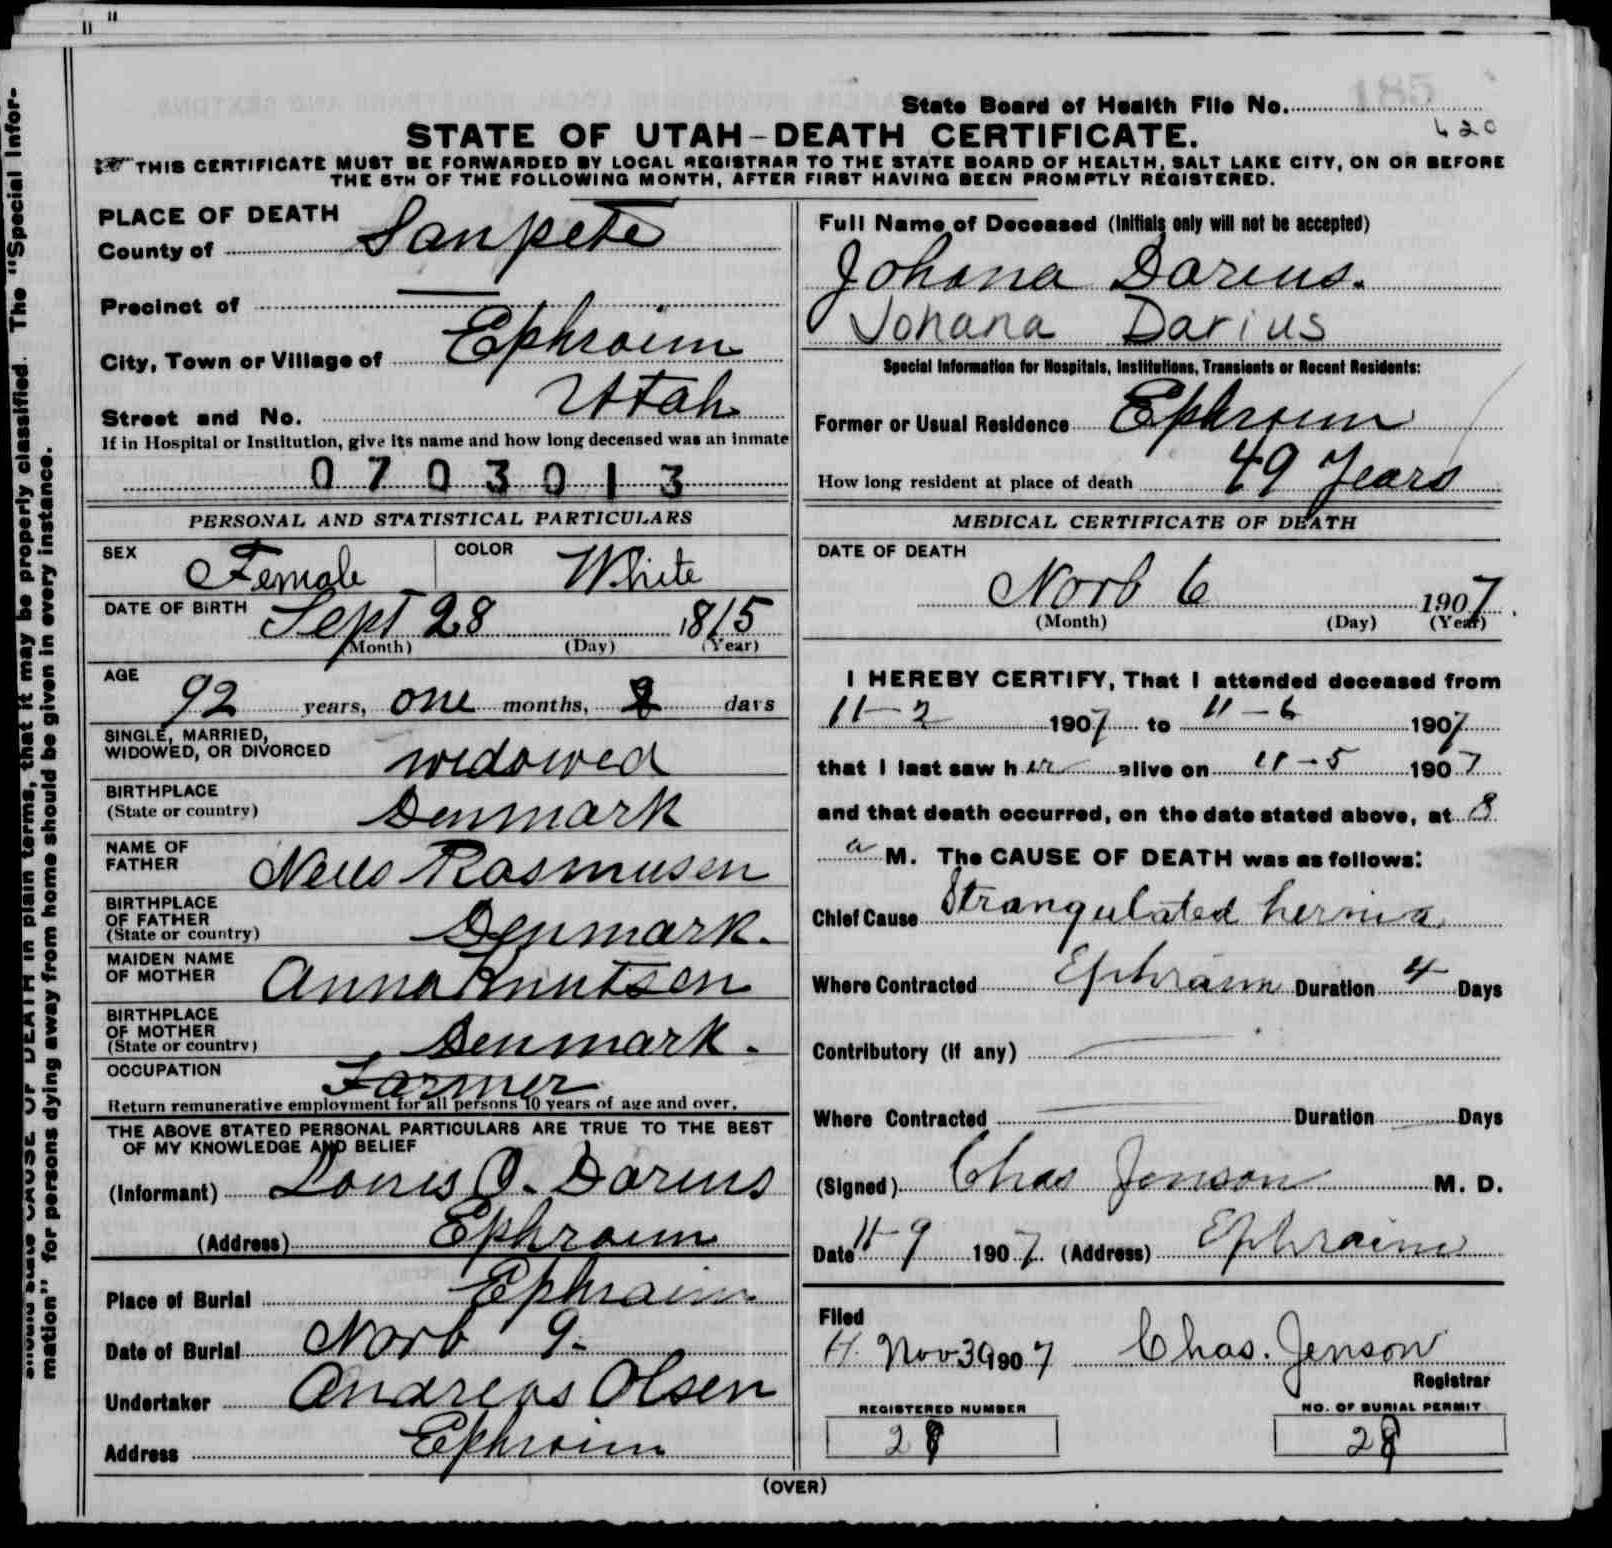 State Board of Health File No. 185
620
STATE OF UTAH-DEATH CERTIFICATE.
THIS CERTIFICATE MUST BE FORWARDED BY LOCAL REGISTRAR TO THE STATE BOARD OF HEALTH, SALT LAKE CITY, ON OR BEFORE
THE 5TH OF THE FOLLOWING MONTH, AFTER FIRST HAVING BEEN PROMPTLY REGISTERED.
PLACE OF DEATH
County of Sanpete
Precinct of
City, Town or Village of Ephraim
Street and No. Utah
If in Hospital or Institution, give its name and how long deceased was an inmate
0703013
PERSONAL AND STATISTICAL PARTICULARS
SEX Female COLOR White
DATE OF BIRTH Sept 28 1815
(Month) (Day) (Year)
AGE
92 years, one months, days
SINGLE, MARRIED,
WIDOWED, OR DIVORCED widowed
BIRTHPLACE
(State or country) Denmark
NAME OF
FATHER Neils Rasmusen
BIRTHPLACE
OF FATHER
(State or country) Denmark.
MAIDEN NAME
OF MOTHER Anna Knutsen
BIRTHPLACE
OF MOTHER
(State or country) Denmark.
OCCUPATION Farmer
Return remunerative employment for all persons 10 years of age and over.
THE ABOVE STATED PERSONAL PARTICULARS ARE TRUE TO THE BEST
OF MY KNOWLEDGE AND BELIEF
(Informant) Louris O. Darius
(Address) Ephraim
Place of Burial Ephraim
Date of Burial Novb 9.
Undertaker Andreas Olsen
Address Ephraim
Full Name of Deceased (Initials only will not be accepted)
Johana Darius.
Johana Darius
Special Information for Hospitals, Institutions, Transients or Recent Residents:
Former or Usual Residence Ephraim
How long resident at place of death 49 Years
MEDICAL CERTIFICATE OF DEATH
DATE OF DEATH
Novb 6 1907.
(Month) (Day) (Year)
I HEREBY CERTIFY, That I attended deceased from
11-2 1907 to 11-6 1907
that I last saw her alive on 11-5 1907
and that death occurred, on the date stated above, at 8
a M. The CAUSE OF DEATH was as follows:
Chief Cause Strangulated hernia.
Where Contracted Ephraim Duration 4 Days
Contributory (if any)
Where Contracted Duration Days
(Signed) Chas Jenson M. D.
Date 11-9 1907. (Address) Ephraim
Filed
Nov 30 1907 Chas. Jenson
Registrar
REGISTERED NUMBER
28
NO. OF BURIAL PERMIT
28
(OVER)
mation" for persons dying away from home should be given in every instance.
should state CAUSE OF DEATH in plain terms, that it may be properly classified. The "Special Infor-